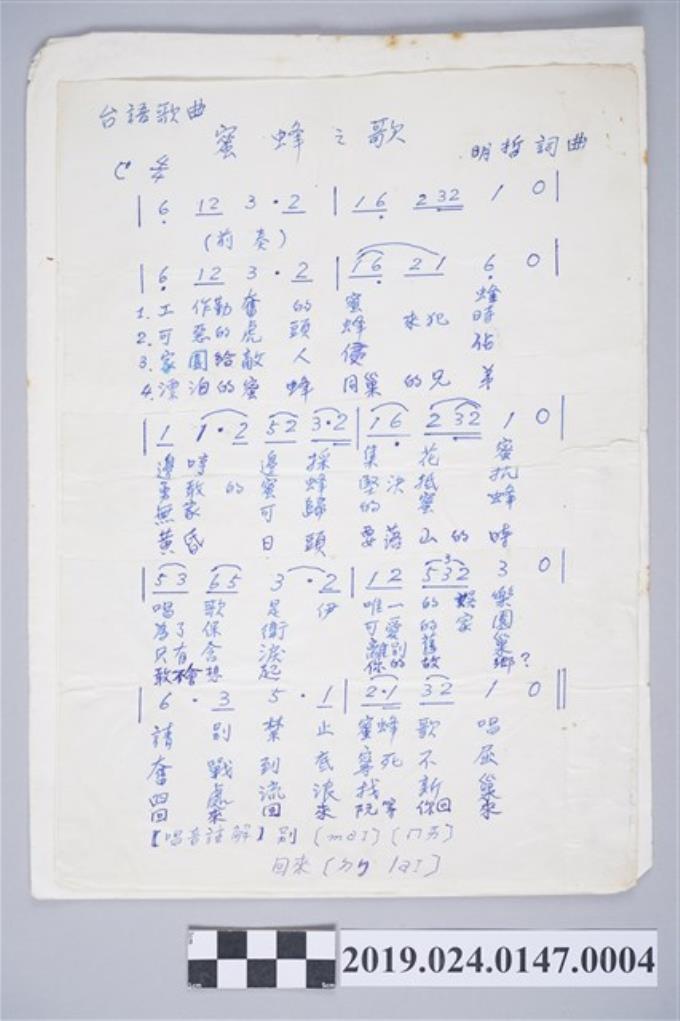 台語歌曲
蜜蜂之歌
明哲詞曲
C 4/4
| 6 12 3 · 2 | 16 2 32 1 0 |
(前奏)
| 6 12 3 · 2 | 16 21 6 0 |
1. 工作勤奮的蜜蜂
2. 可惡的虎頭蜂來犯時
3. 家園給敵人侵佔
4. 漂泊的蜜蜂同巢的兄弟
| 1 1 · 2 52 3·2 | 16 2 32 1 0 |
邊哼邊採集花蜜
勇敢的蜜蜂堅決抵抗
無家可歸的蜜蜂
黃昏日頭要落山的時
| 53 65 3 · 2 | 12 532 3 0 |
唱歌是伊唯一的娛樂
為了保衛可愛的家園
只有含淚離別舊巢
敢不會想起你的故鄉?
| 6 · 3 5 · 1 | 2·1 32 1 0 ||
請別禁止蜜蜂歌唱
奮戰到底寧死不屈
四處流浪找新巢
回來回來阮等你回來
【唱音註解】別〔mai〕(ㄇㄞ)